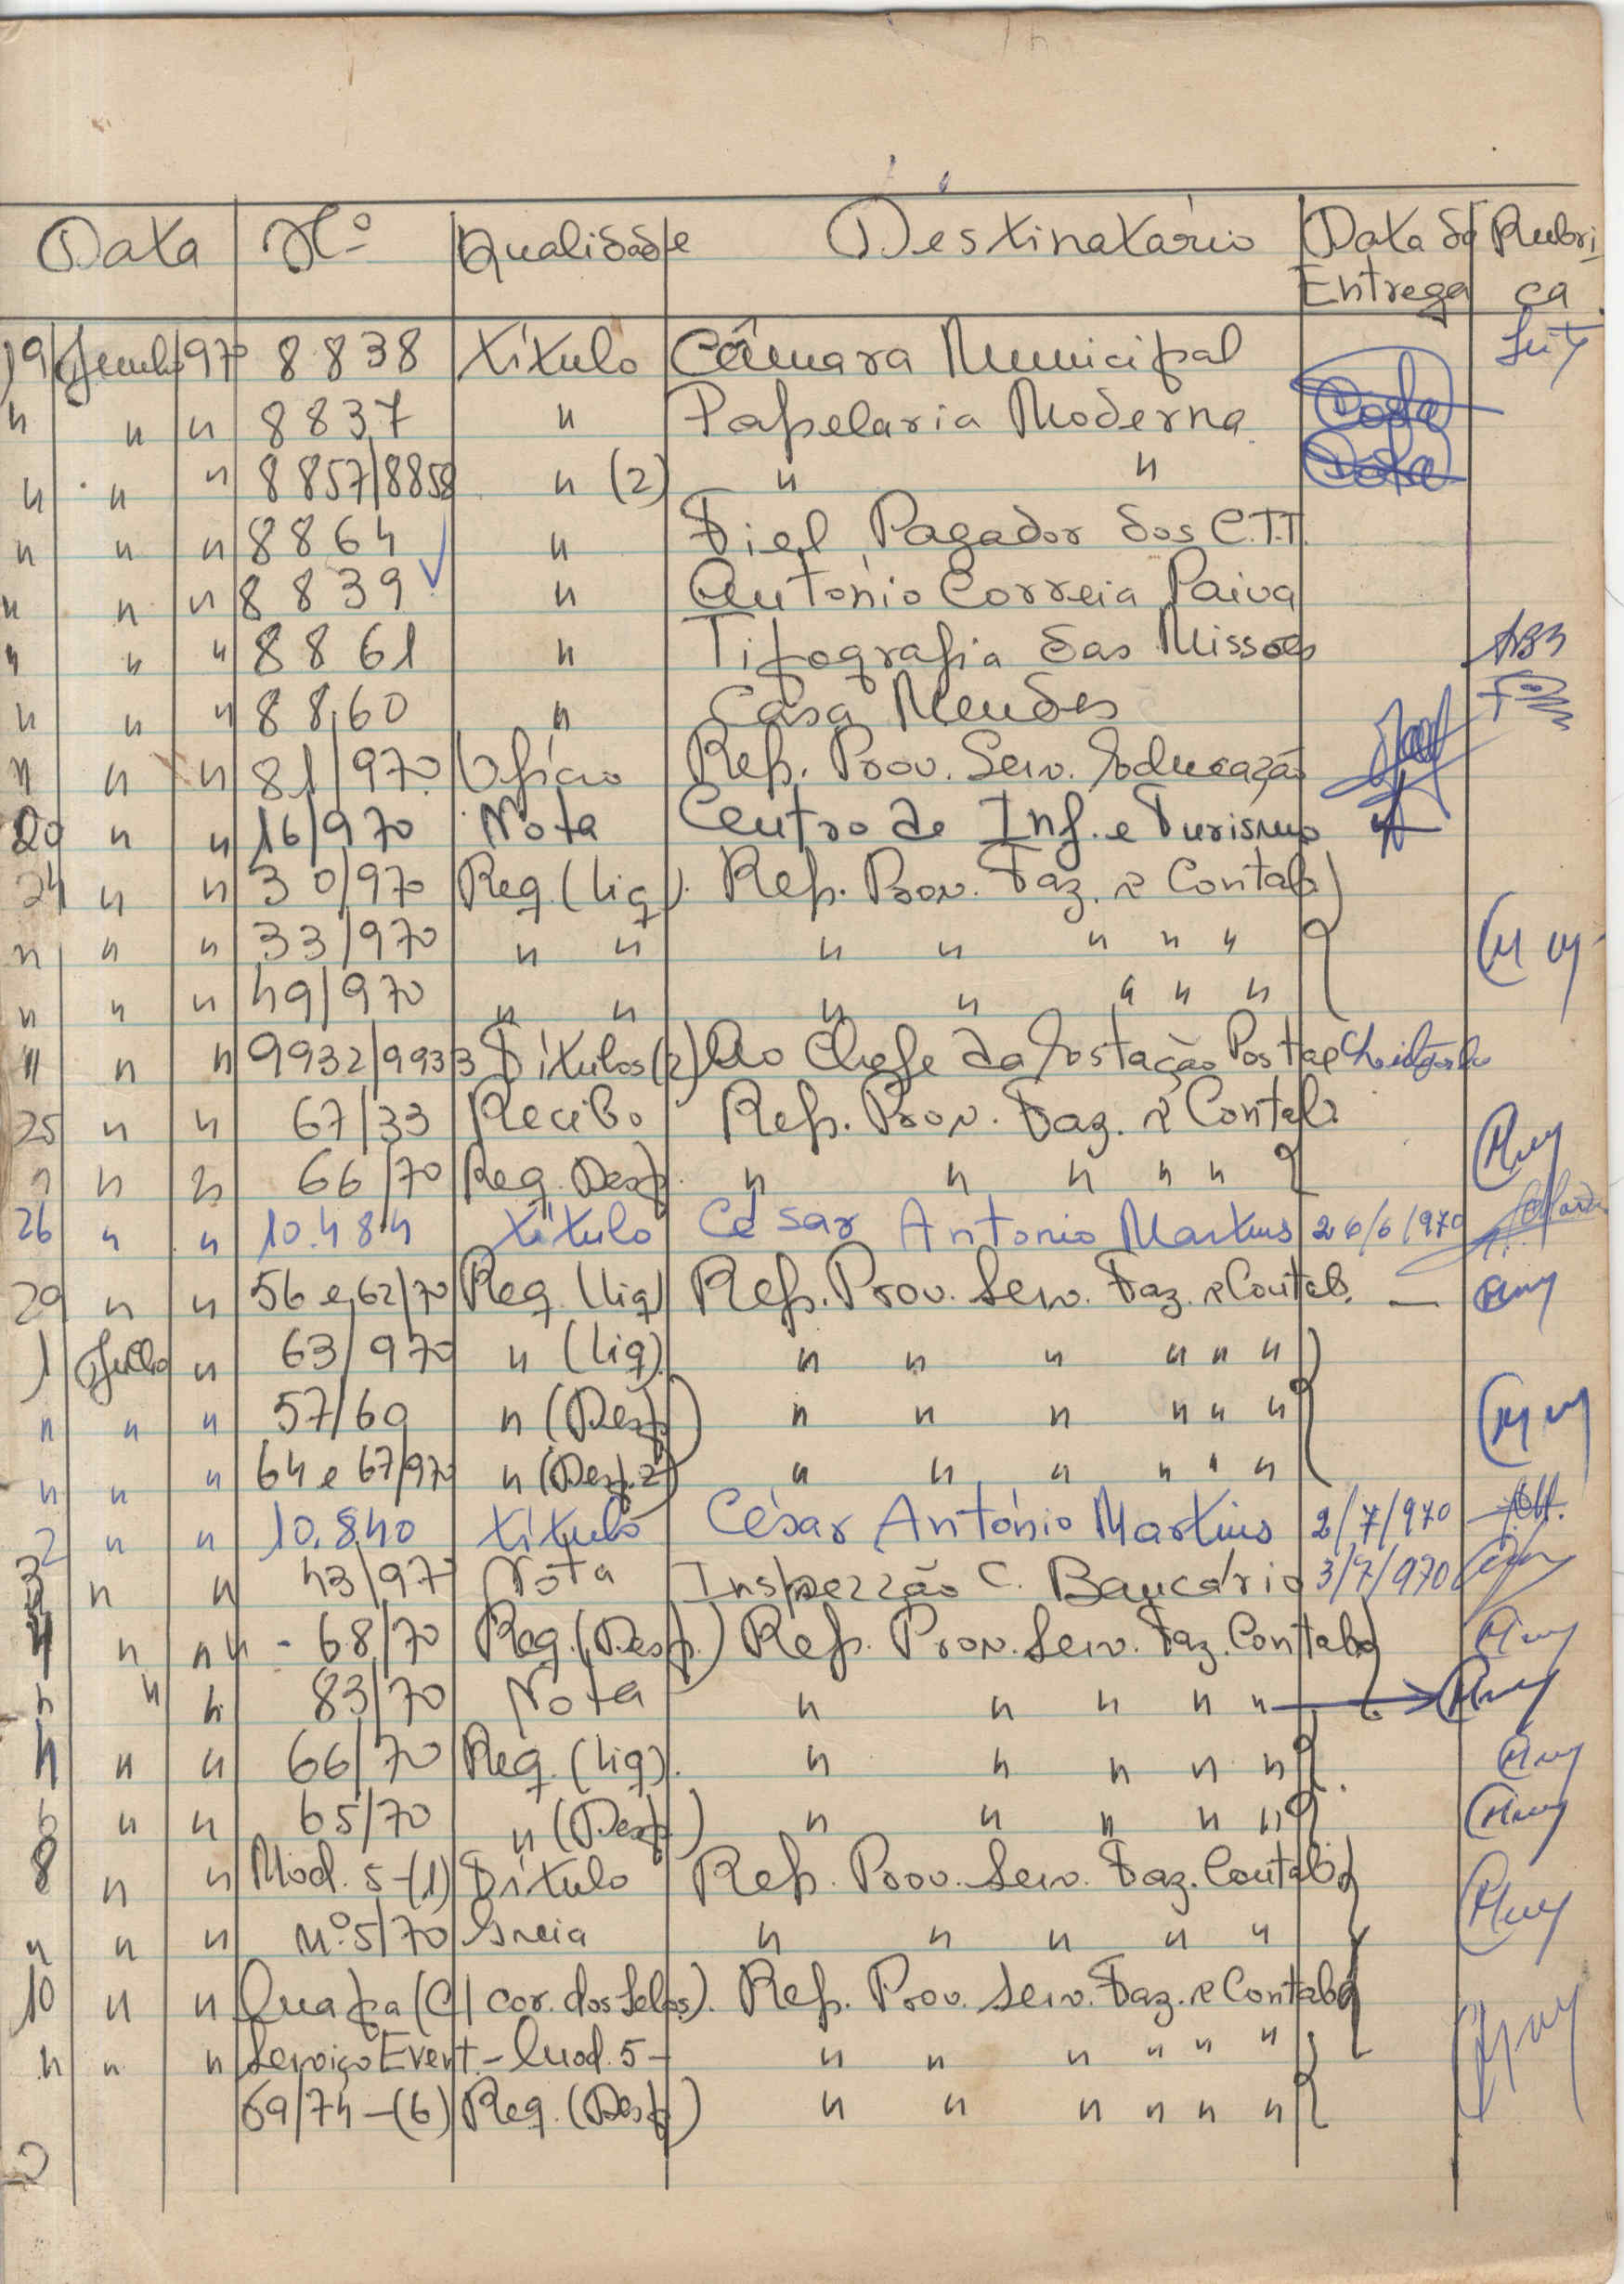 Data Nº Qualidade Destinatário Data da Entrega Rubrica
19 Junho 970 8838 Título Câmara Municipal
" " " 8837 " Papelaria Moderna Costa
" " " 8857/8858 " (2) " " Costa
" " " 8864 " Fiel Pagador dos C.T.T.
" " " 8839 " António Correia Paiva
" " " 8861 " Tipografia das Missões
" " " 8860 " Casa Mendes
" " " 81/970 Ofício Rep. Prov. Serv. Educação
20 " " 16/970 Nota Centro de Inf. e Turismo
24 " " 30/970 Req. (Liq.) Rep. Prov. Faz. e Contab.
" " " 33/970 " " " " " " "
" " " 49/970 " " " " " " "
" " " 9932/9933 Títulos (2) Ao Chefe da Estação Postal
25 " " 67/33 Recibo Rep. Prov. Faz. e Contab.
" " " 66/70 Req. Desp. " " " " "
26 " " 10.484 Título César Antonio Martins 26/6/970
29 " " 56 e 62/70 Req. (Liq) Rep. Prov. Serv. Faz. e Contab. —
1 Julho " 63/970 " (Liq). " " " " " "
" " " 57/69 " (Desp) " " " " " "
" " " 64 e 67/970 " (Desp. 2) " " " " " "
2 " " 10.840 Título César António Martins 2/7/970
3 " " 43/970 Nota Inspecção C. Bancário 3/7/970
4 " " " - 68/70 Req. (Desp.) Rep. Prov. Serv. Faz. Contab.
" " " 83/70 Nota " " " " "
" " " 66/70 Req. (Liq). " " " " "
6 " " 65/70 " (Desp.) " " " " "
8 " " Mod. 5-(1) Título Rep. Prov. Serv. Faz. Contab.
" " " Nº 5/70 Guia " " " " "
10 " " (C/ cor. dos Selos). Rep. Prov. Serv. Faz. e Contab.
" " " Serviço Event. - Mod. 5 - " " " " " "
69/74 - (6) Req. (Desp) " " " " " "